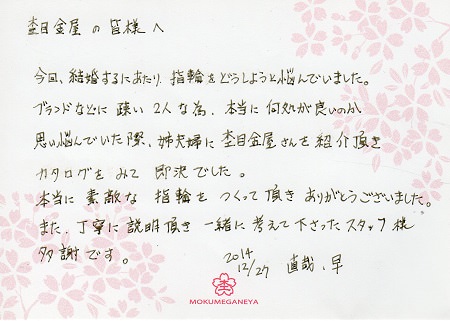 杢目金屋の皆様へ
今回、結婚するにあたり、指輪をどうしようと悩んでいました。
ブランドなどに疎い2人な為、本当に何処が良いのか
思い悩んでいた際、姉夫婦に杢目金屋さんを紹介頂き
カタログをみて即決でした。
本当に素敵な指輪をつくって頂きありがとうございました。
また、丁寧に説明頂き一緒に考えて下さったスタッフ様
多謝です。
2014
12/27 直哉、早
MOKUMEGANEYA